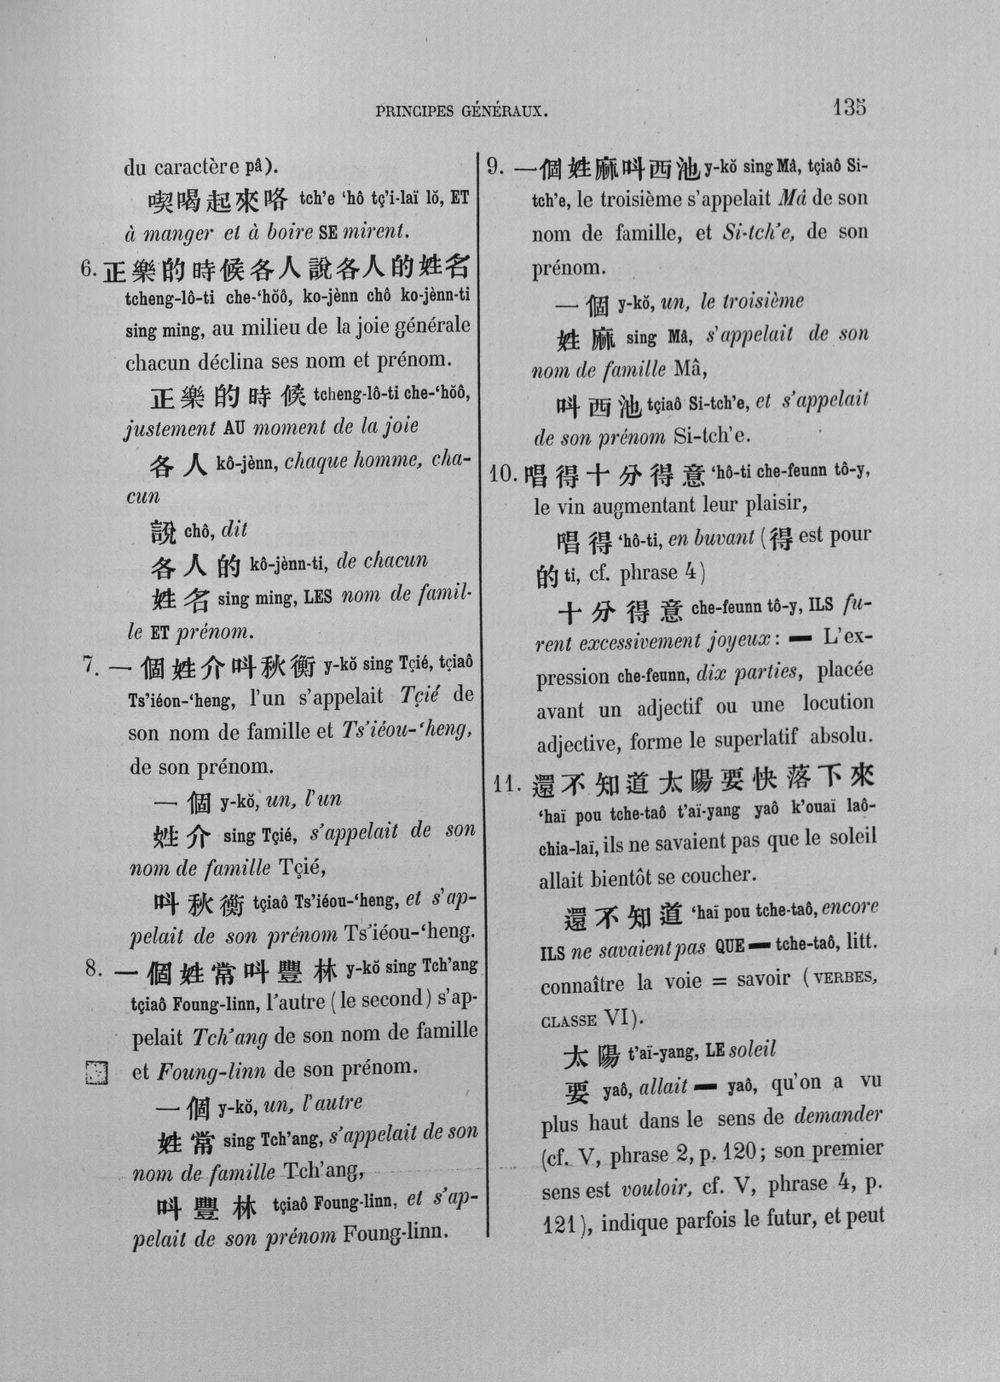 PRINCIPES GÉNÉRAUX.
135
du caractère pâ).
喫喝起來咯 tch'e ‘hô tç'i-laï lŏ, ET
à manger et à boire SE mirent.
6. 正樂的時候各人說各人的姓名
tcheng-lô-ti che-‘hŏô, ko-jènn chô ko-jènn-ti
sing ming, au milieu de la joie générale
chacun déclina ses nom et prénom.
正樂的時候 tcheng-lô-ti che-‘hŏô,
justement AU moment de la joie
各人 kô-jènn, chaque homme, cha-
cun
說 chô, dit
各人的 kô-jènn-ti, de chacun
姓名 sing ming, LES nom de famil-
le ET prénom.
7. 一個姓介叫秋衡 y-kŏ sing Tçié, tçiaô
Ts'iéon-‘heng, l'un s'appelait Tçié de
son nom de famille et Ts'iéou-‘heng,
de son prénom.
一個 y-kŏ, un, l'un
姓介 sing Tçié, s'appelait de son
nom de famille Tçié,
叫秋衡 tçiaô Ts'iéou-‘heng, et s'ap-
pelait de son prénom Ts'iéou-‘heng.
8. 一個姓常叫豐林 y-kŏ sing Tch'ang
tçiaô Foung-linn, l'autre (le second) s'ap-
pelait Tch'ang de son nom de famille
et Foung-linn de son prénom.
一個 y-kŏ, un, l'autre
姓常 sing Tch'ang, s'appelait de son
nom de famille Tch'ang,
叫豐林 tçiaô Foung-linn, et s'ap-
pelait de son prénom Foung-linn.
9. 一個姓麻叫西池 y-kŏ sing Mâ, tçiaô Si-
tch'e, le troisième s'appelait Mâ de son
nom de famille, et Si-tch'e, de son
prénom.
一個 y-kŏ, un, le troisième
姓麻 sing Mâ, s'appelait de son
nom de famille Mâ,
叫西池 tçiaô Si-tch'e, et s'appelait
de son prénom Si-tch'e.
10. 唱得十分得意 ‘hô-ti che-feunn tô-y,
le vin augmentant leur plaisir,
唱得 ‘hô-ti, en buvant (得 est pour
的 ti, cf. phrase 4)
十分得意 che-feunn tô-y, ILS fu-
rent excessivement joyeux: — L'ex-
pression che-feunn, dix parties, placée
avant un adjectif ou une locution
adjective, forme le superlatif absolu.
11. 還不知道太陽要快落下來
‘haï pou tche-taô t'aï-yang yaô k'ouaï laô-
chia-laï, ils ne savaient pas que le soleil
allait bientôt se coucher.
還不知道 ‘haï pou tche-taô, encore
ILS ne savaient pas QUE — tche-taô, litt.
connaître la voie = savoir (VERBES,
CLASSE VI).
太陽 t'aï-yang, LE soleil
要 yaô, allait — yaô, qu'on a vu
plus haut dans le sens de demander
(cf. V, phrase 2, p. 120; son premier
sens est vouloir, cf. V, phrase 4, p.
121), indique parfois le futur, et peut